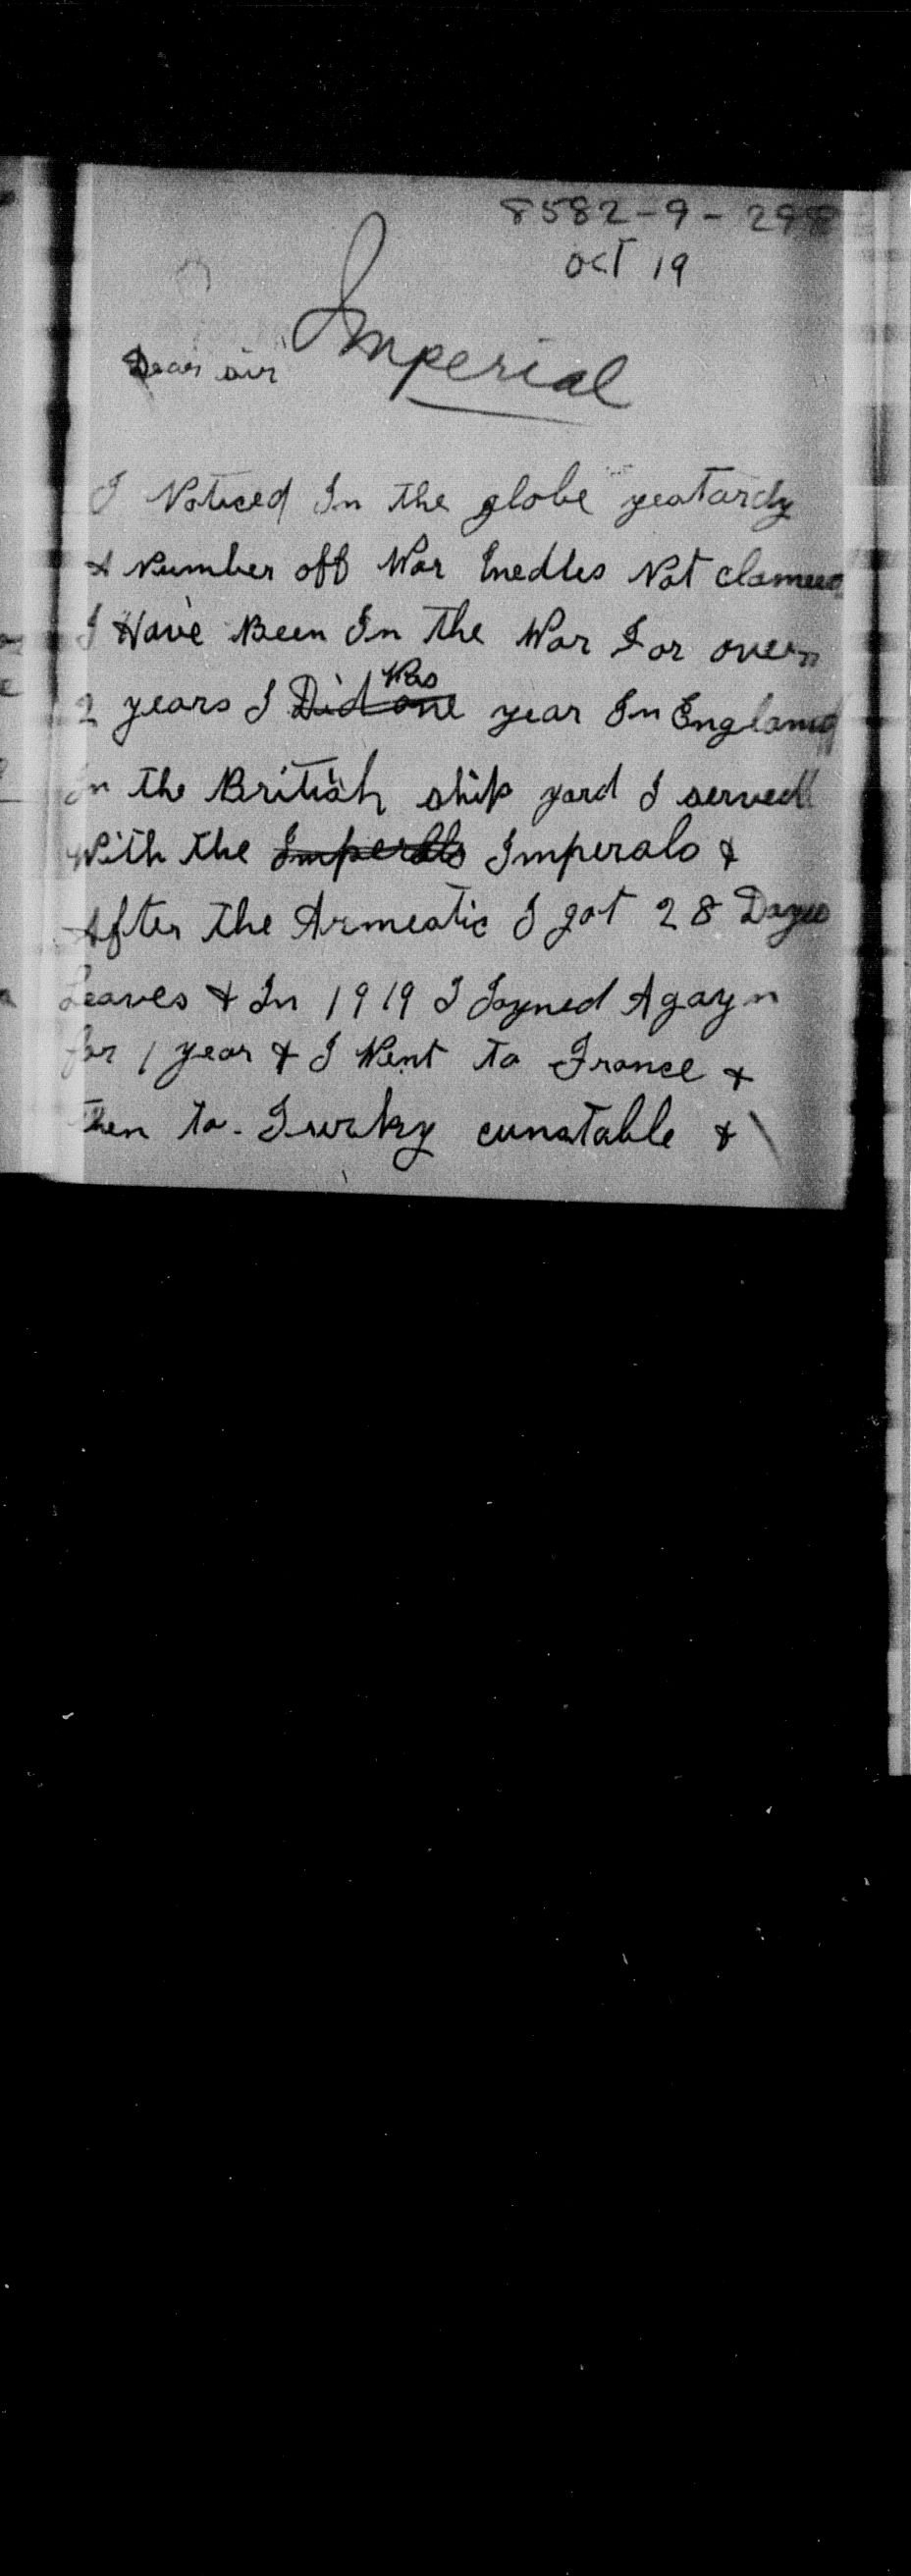 8582-9-298
Oct 19
Imperial
Dear sir
I Noticed In the globe yestardy
A Number off War medles Not clamed
I Have Been In the War For over
2 years I Did one Was year In England
In the British ship yard I served
With the Imperils Imperals &
After the Armestic I got 28 Days
Leaves & In 1919 I Joyned Agayn
for 1 year & I Went to France &
then to Turky cunstable &